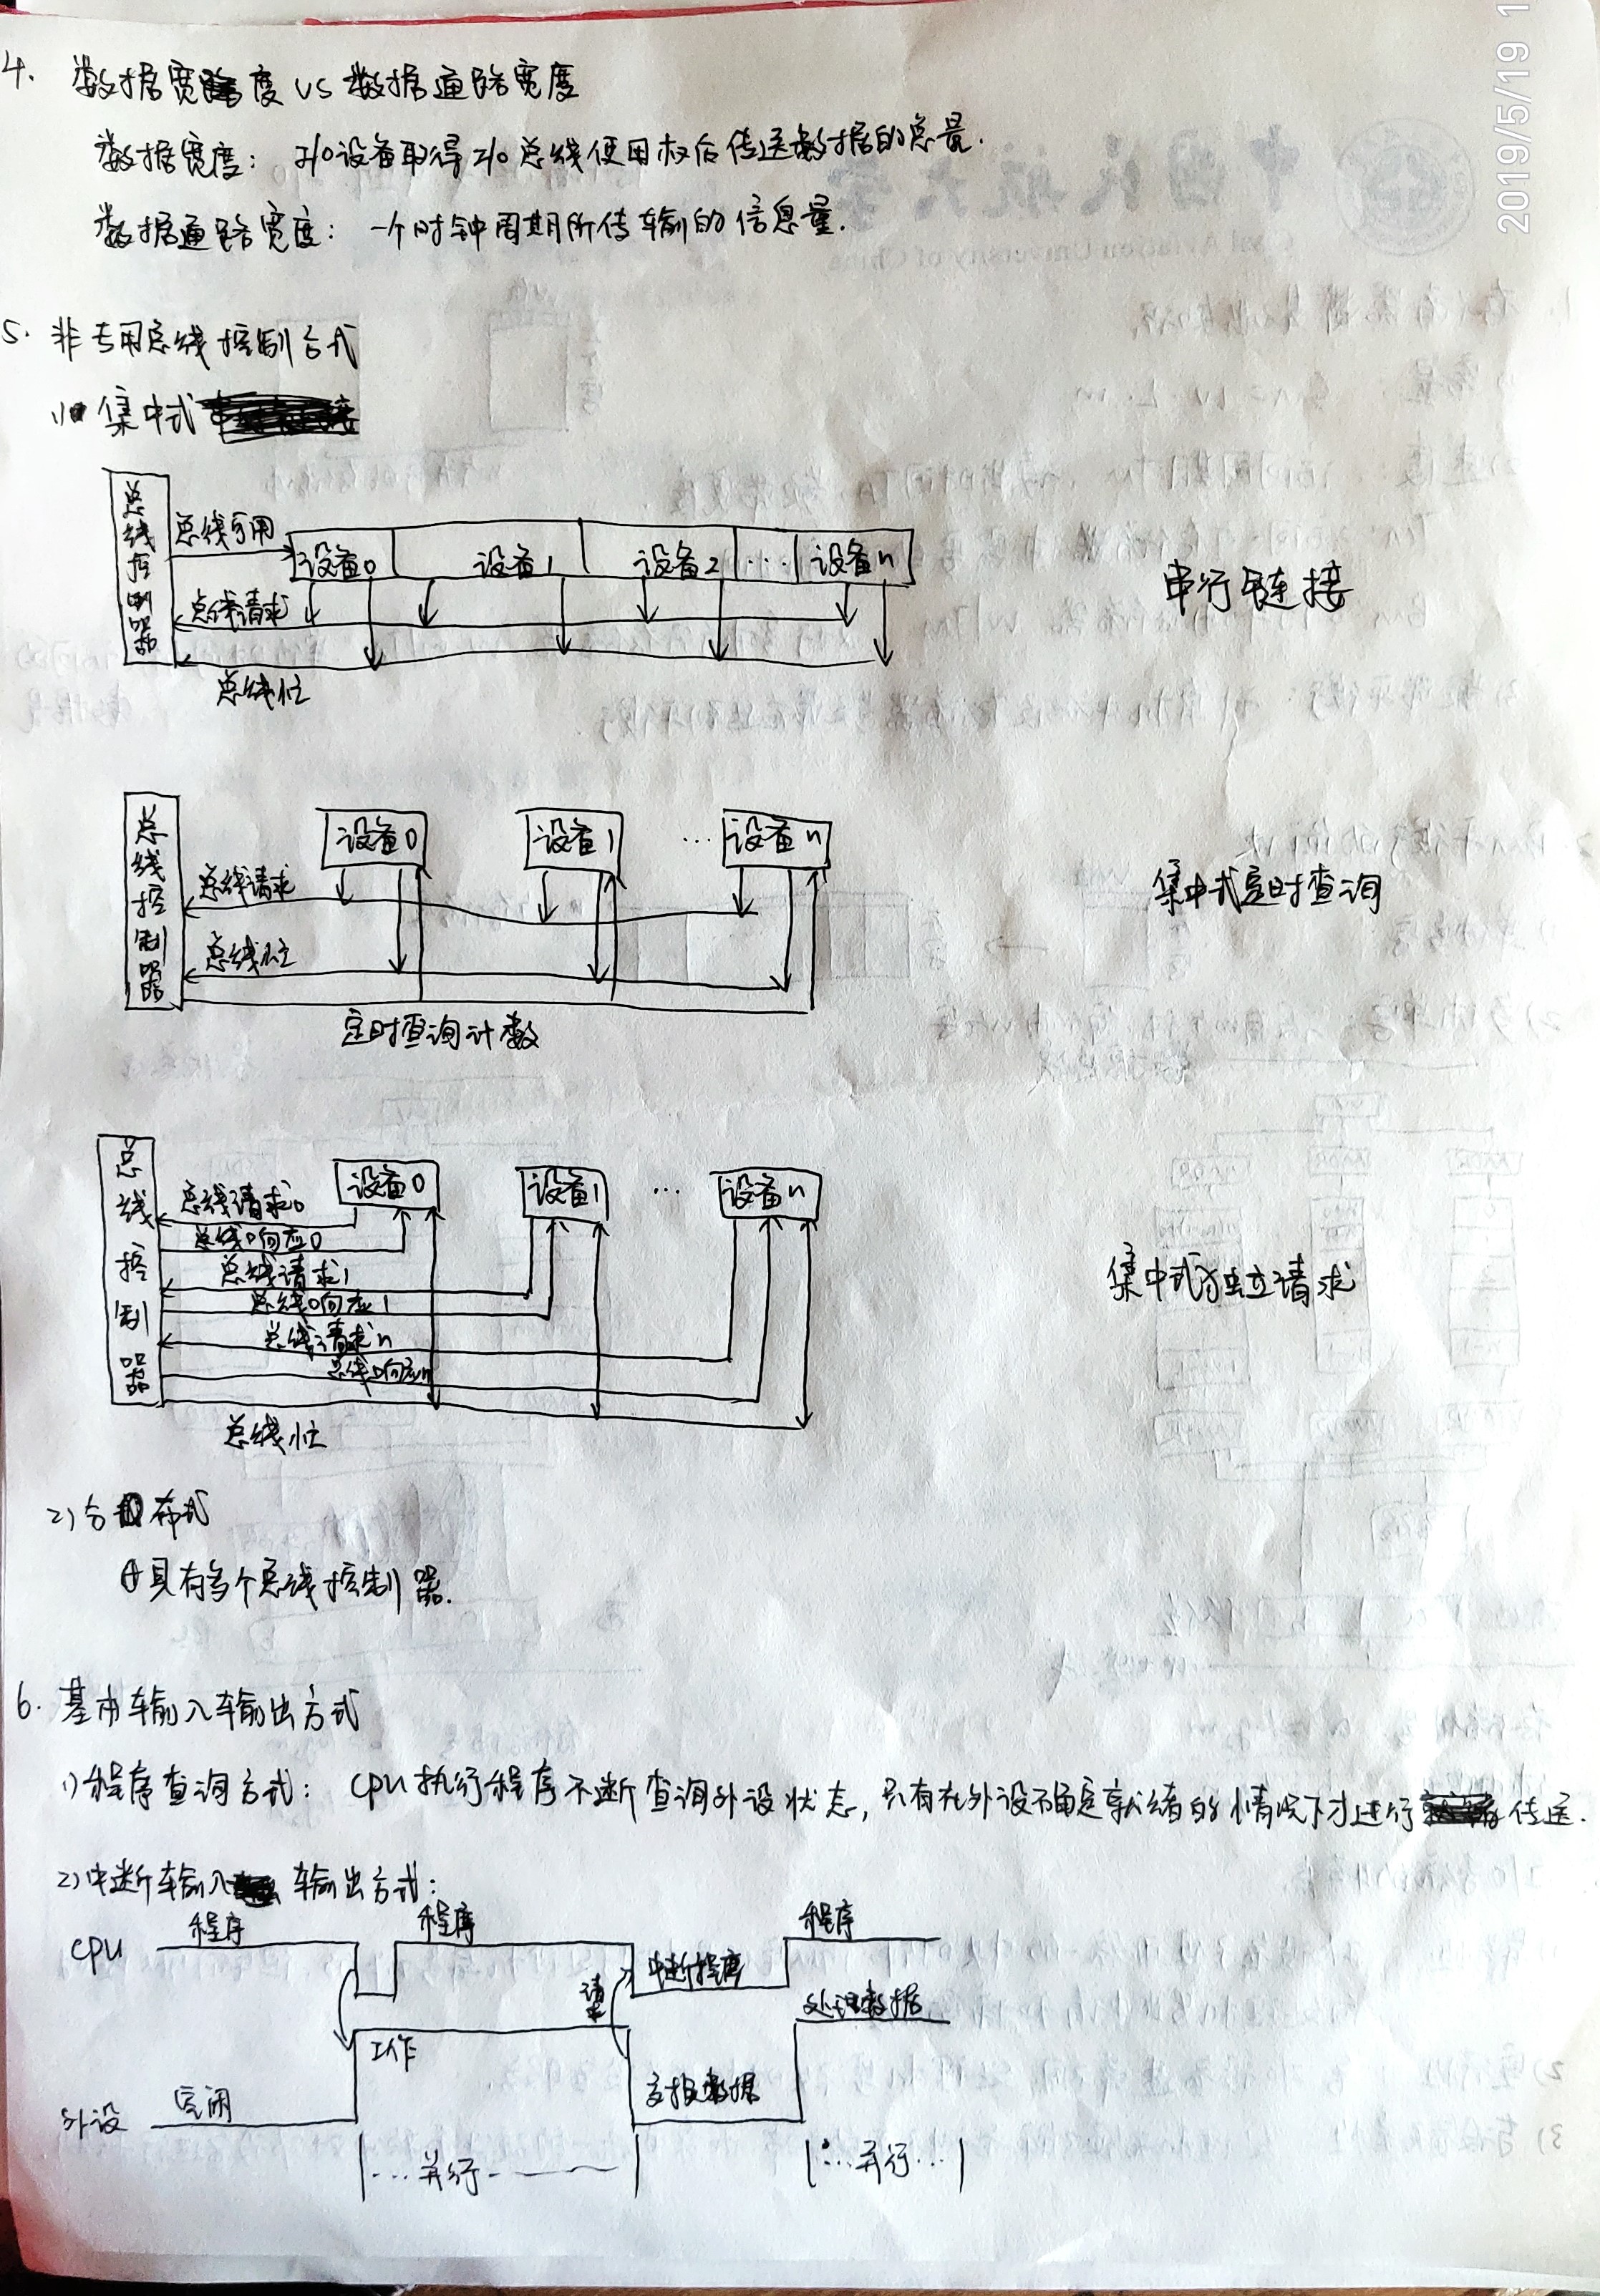 2019/5/19 1
4. 数据宽度 vs 数据通路宽度
数据宽度: I/O设备取得I/O总线使用权后传送数据的总量.
数据通路宽度: 一个时钟周期所传输的信息量.
5. 非专用总线控制方式
1) 集中式
总线控制器
总线可用
设备0 设备1 设备2 ... 设备n
总线请求
总线忙
串行链接
总线控制器
设备0 设备1 ... 设备n
总线请求
总线忙
定时查询计数
集中式定时查询
总线控制器
设备0 设备1 ... 设备n
总线请求0
总线响应0
总线请求1
总线响应1
总线请求n
总线响应n
总线忙
集中式独立请求
2) 分布式
具有多个总线控制器.
6. 基本输入输出方式
1) 程序查询方式: CPU执行程序不断查询外设状态, 只有在外设确定就绪的情况下才进行传送.
2) 中断输入输出方式:
CPU 程序 程序 中断程序 程序
请求
工作 处理数据
外设 空闲 数据
|...并行---| |...并行...|